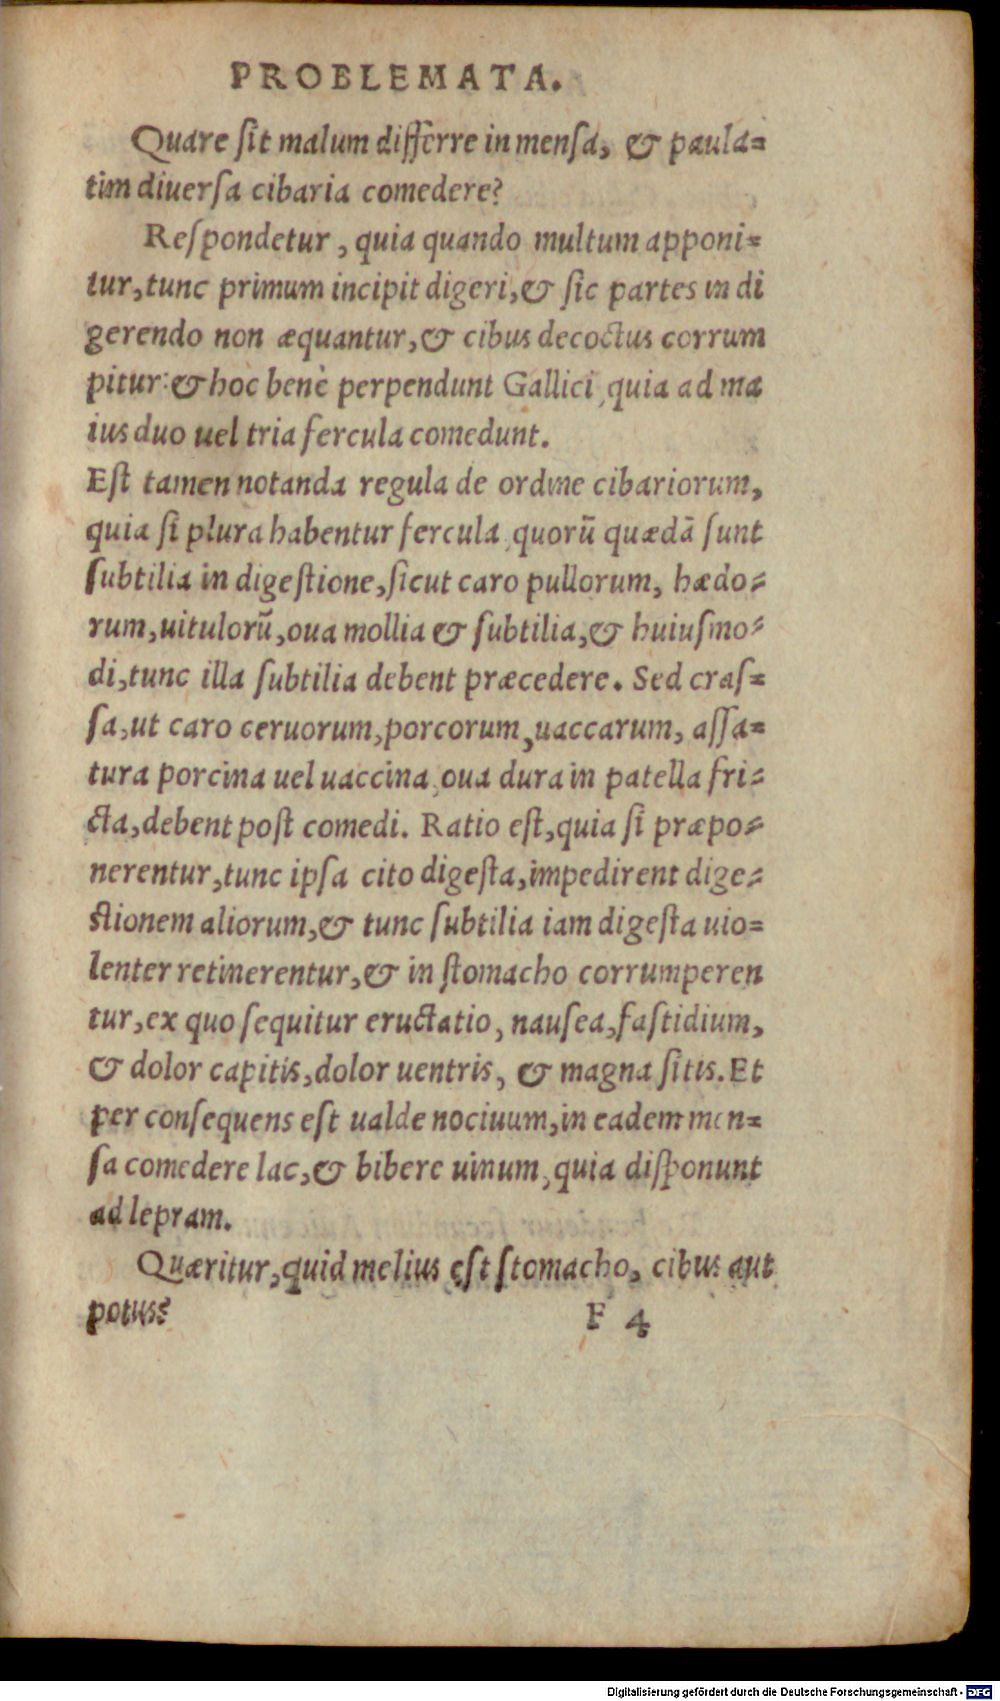 PROBLEMATA.
Quare ſit malum differre in menſa, & paula=
tim diuerſa cibaria comedere?
Reſpondetur, quia quando multum apponi=
tur, tunc primum incipit digeri, & ſic partes in di
gerendo non æquantur, & cibus decoctus corrum
pitur: & hoc benè perpendunt Gallici, quia ad ma
ius duo uel tria fercula comedunt.
Eſt tamen notanda regula de ordine cibariorum,
quia ſi plura habentur fercula, quorũ quædã ſunt
ſubtilia in digeſtione, ſicut caro pullorum, hædo=
rum, uitulorũ, oua mollia & ſubtilia, & huiuſmo=
di, tunc illa ſubtilia debent præcedere. Sed craſ=
ſa, ut caro ceruorum, porcorum, uaccarum, aſſa=
tura porcina uel uaccina, oua dura in patella fri=
cta, debent poſt comedi. Ratio eſt, quia ſi præpo=
nerentur, tunc ipſa cito digeſta, impedirent dige=
ſtionem aliorum, & tunc ſubtilia iam digeſta uio=
lenter retinerentur, & in ſtomacho corrumperen
tur, ex quo ſequitur eructatio, nauſea, faſtidium,
& dolor capitis, dolor uentris, & magna ſitis. Et
per conſequens eſt ualde nociuum, in eadem men=
ſa comedere lac, & bibere uinum, quia diſponunt
ad lepram.
Quæritur, quid melius eſt ſtomacho, cibus aut
potus?
F 4
Digitalisierung gefördert durch die Deutsche Forschungsgemeinschaft - DFG